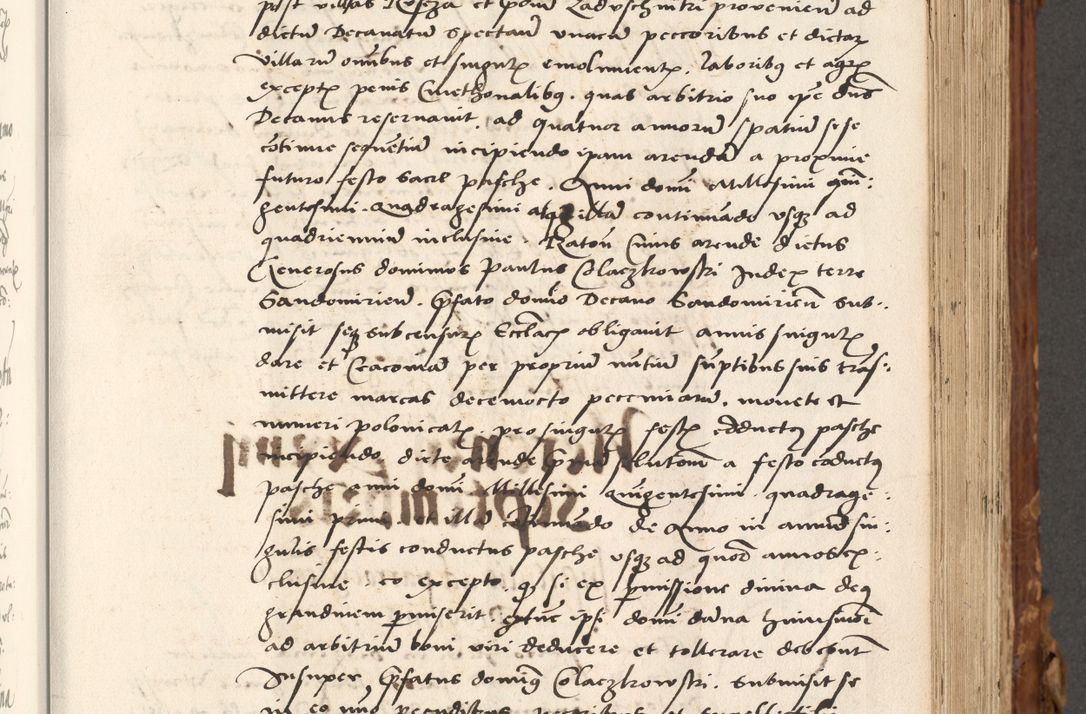 post villas et provenien ad
dictu Decanatu spectan unacu peccoribus et dictar
villaru omibus et singulis emolumentis, laboribus et agris
exceptis penis Cmethonalibus, quas arbitrio suo ipse dns
Decanus reservavit, ad quatuor annoru spatiu sese
cotinue sequetiu incipiendo ipam arenda a proxime
futuro festo Sacre pasche, Anni domi Millesimi quin:
gentesimi Quadragesimi et illa continuado usque ad
quadrienniu inclusive, Raton Cuius arende dictus
Generosus dominus Paulus Colaczkowski Judex terre
Sandomirien, Prefato domio Decano Sandomirien sub-
misit seque sub censuris Ecclacis obligavit annis singulis
dare et Cracovia per propriu nutiu suptibus suis tras:
mittere marcas decemocto pecuniaru, monete et
numeri polonicalis, pro singulis festis coductus pasche
incipiendo dicte arende prima solutione a festo coductus
pasche anni domi Millesimi Quigentesimi quadrage:
simi primi et illa cotinuado de Anno in annu sin:
gulis festis conductus pasche usque ad quatuor annos ex:
clusive eo excepto, quod si ex permissione divina deus
grandinem permiserit, extunc ipi domi dana huiusmodi
ad arbitriu boni viri deducere et tollerare debebunt
Insuper, Prefatus dominus Colaczkowski, submisit se
in eo